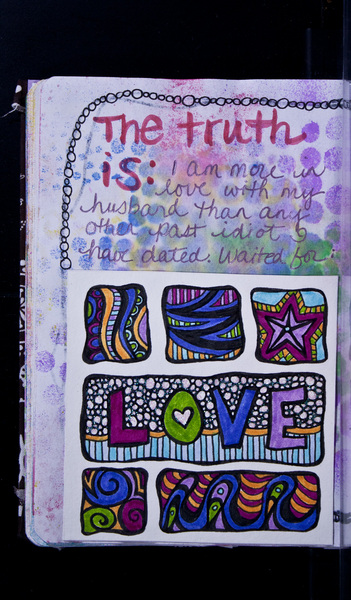 The truth
is: I am more in
love with my
husband than any
other past idiot I
have dated. Waited for
LOVE